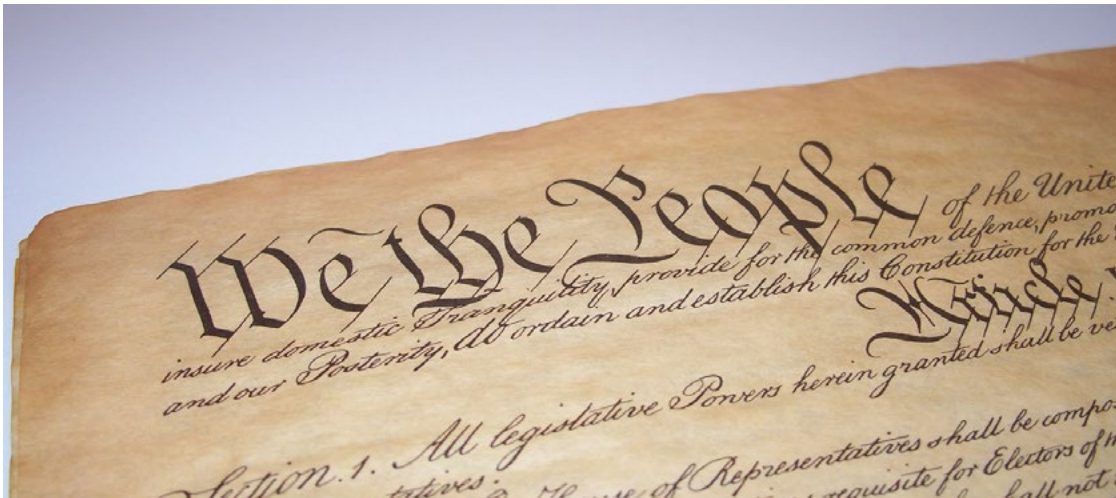 We the People of the Unite
insure domestic Tranquility, provide for the common defence, promo
and our Posterity, do ordain and establish this Constitution for the
Article
Section. 1. All legislative Powers herein granted shall be ve
tatives.
House of Representatives shall be compo
requisite for Electors of th
hall not